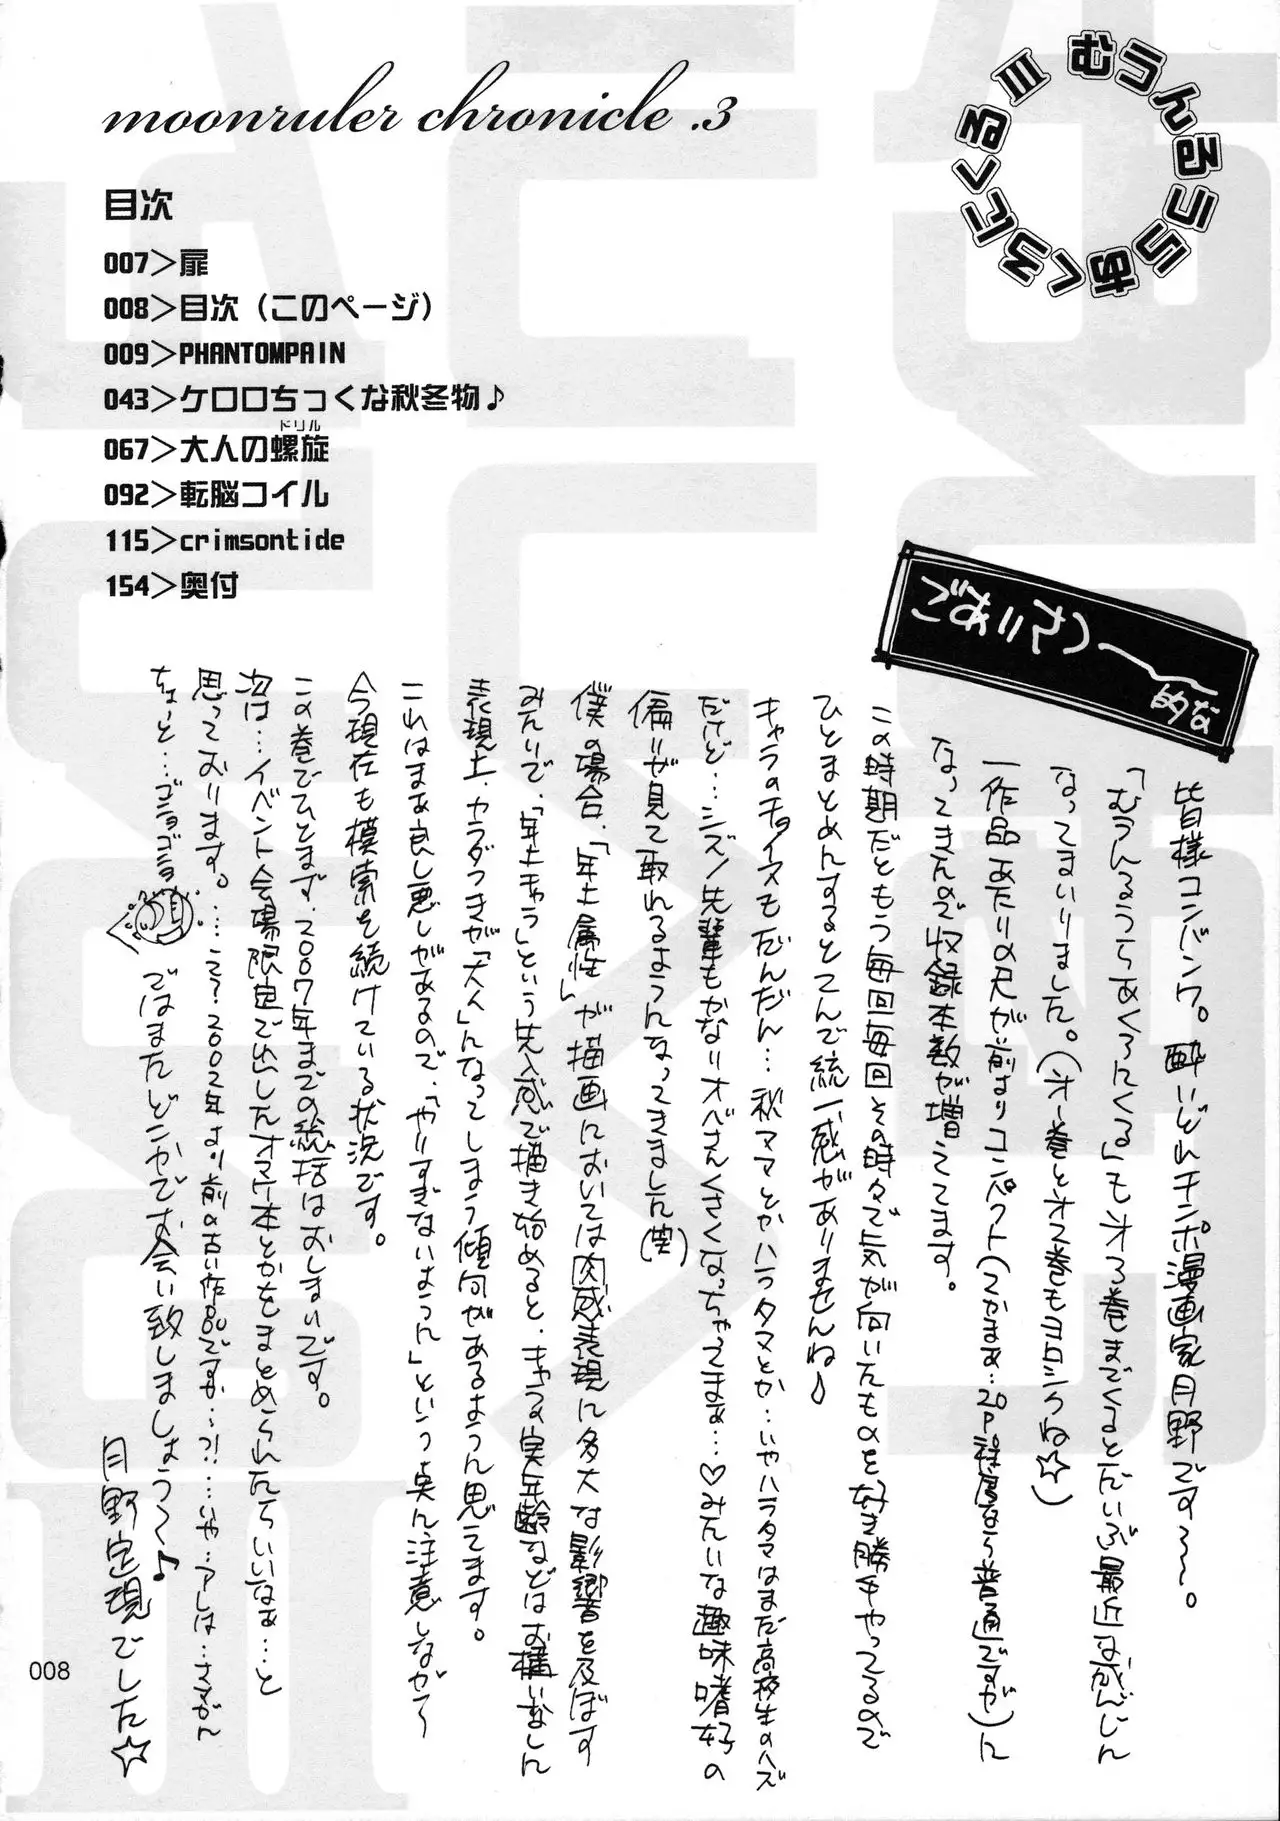 moonruler chronicle .3
むうんるうらあくろにくるⅢ
目次
007>扉
008>目次(このページ)
009>PHANTOMPAIN
043>ケロロちっくな秋冬物♪
067>大人の螺旋
ドリル
092>転脳コイル
115>crimsontide
154>奥付
ごあいさつ〜的な
皆様コンバンワ。酔いどれチンポ漫画家月野です〜〜。
「むうんるうらあくろにくる」もオ3巻までくるとだいぶ最近なかんじに
なってまいりました。(オ1巻とオ2巻もヨロシクね☆)
一作品あたりの尺が前よりコンパクト(つかまぁ…20P程度なら普通ですが)に
なってきたので収録本数が増えてます。
この時期だともう毎回毎回その時々で気が向いたものを好き勝手やってるので
ひとまとめにするとてんで統一感がありませんね♪
キャラのチョイスもだんだん…秋ママとかハラタマとか…いやハラタマはまだ高校生のハズ
だけど…シズノ先輩もかなりオバさんくさくなっちゃてまぁ…♡みたいな趣味嗜好の
偏りが見て取れるようになってきました(笑)
僕の場合、「年上属性」が描画においては肉感表現に多大な影響を及ぼす
みたいで、「年上キャラ」という先入感で描き始めると、キャラの実年齢などはお構いなしに
表現上、カラダつきが「大人」になってしまう傾向があるように思えてます。
これはまぁ良し悪しがあるので、「やりすぎないように」という具に注意しながら
今現在も模索を続けている状況です。
この巻でひとまず、2007年までの総括はおしまいです。
次は…イベント会場限定で出したオマケ本とかをまとめられたらいいなぁ…と
思っております。……え?2002年より前の古い作品ですか…?!…いや…アレは…
ちょっと…ゴショゴショ
ではまたどこかでお会い致しましょう〜♪
月野定規でした☆
008